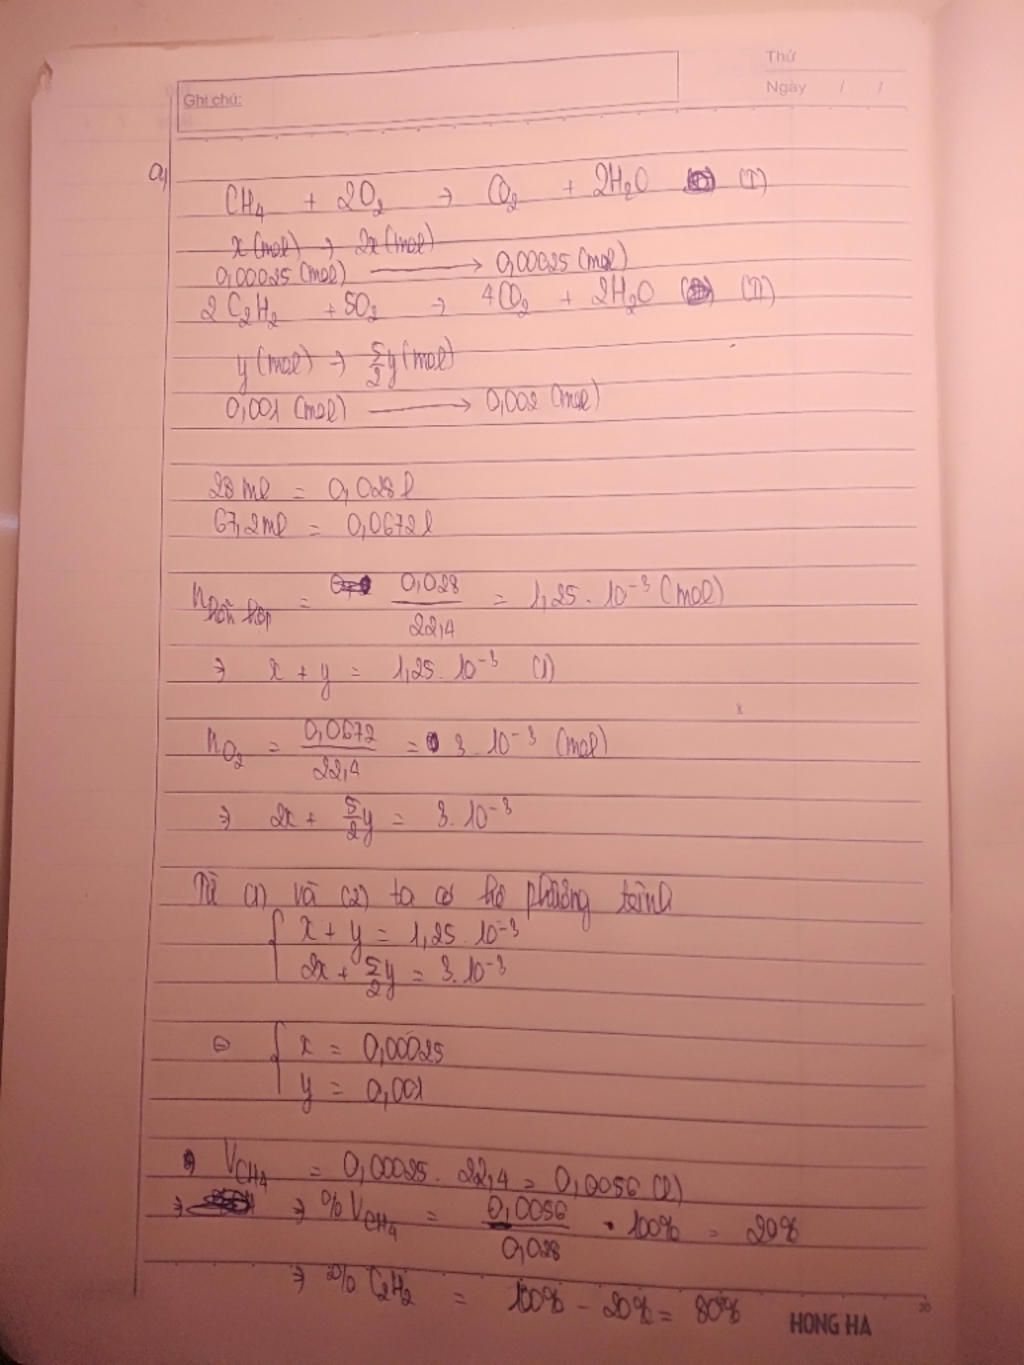 Thứ
Ghi chú:
Ngày / /
a,
CH₄ + 2O₂ → CO₂ + 2H₂O (I)
x (mol) → 2x (mol)
0,00025 (mol) → 0,00025 (mol)
2C₂H₂ + 5O₂ → 4CO₂ + 2H₂O (II)
y (mol) → 5/2 y (mol)
0,001 (mol) → 0,002 (mol)
28 ml = 0,028 l
67,2 ml = 0,0672 l
n hỗn hợp = 0,028/22,4 = 1,25 . 10⁻³ (mol)
→ x + y = 1,25 . 10⁻³ (1)
n O₂ = 0,0672/22,4 = 3 . 10⁻³ (mol)
→ 2x + 5/2 y = 3. 10⁻³
Từ (1) và (2) ta có hệ phương trình
{ x + y = 1,25 . 10⁻³
2x + 5/2 y = 3. 10⁻³
⇔ { x = 0,00025
y = 0,001
→ V CH₄ = 0,00025 . 22,4 = 0,0056 (l)
→ → %V CH₄ = 0,0056/0,028 . 100% = 20%
→ % C₂H₂ = 100% - 20% = 80%
HONG HA
20